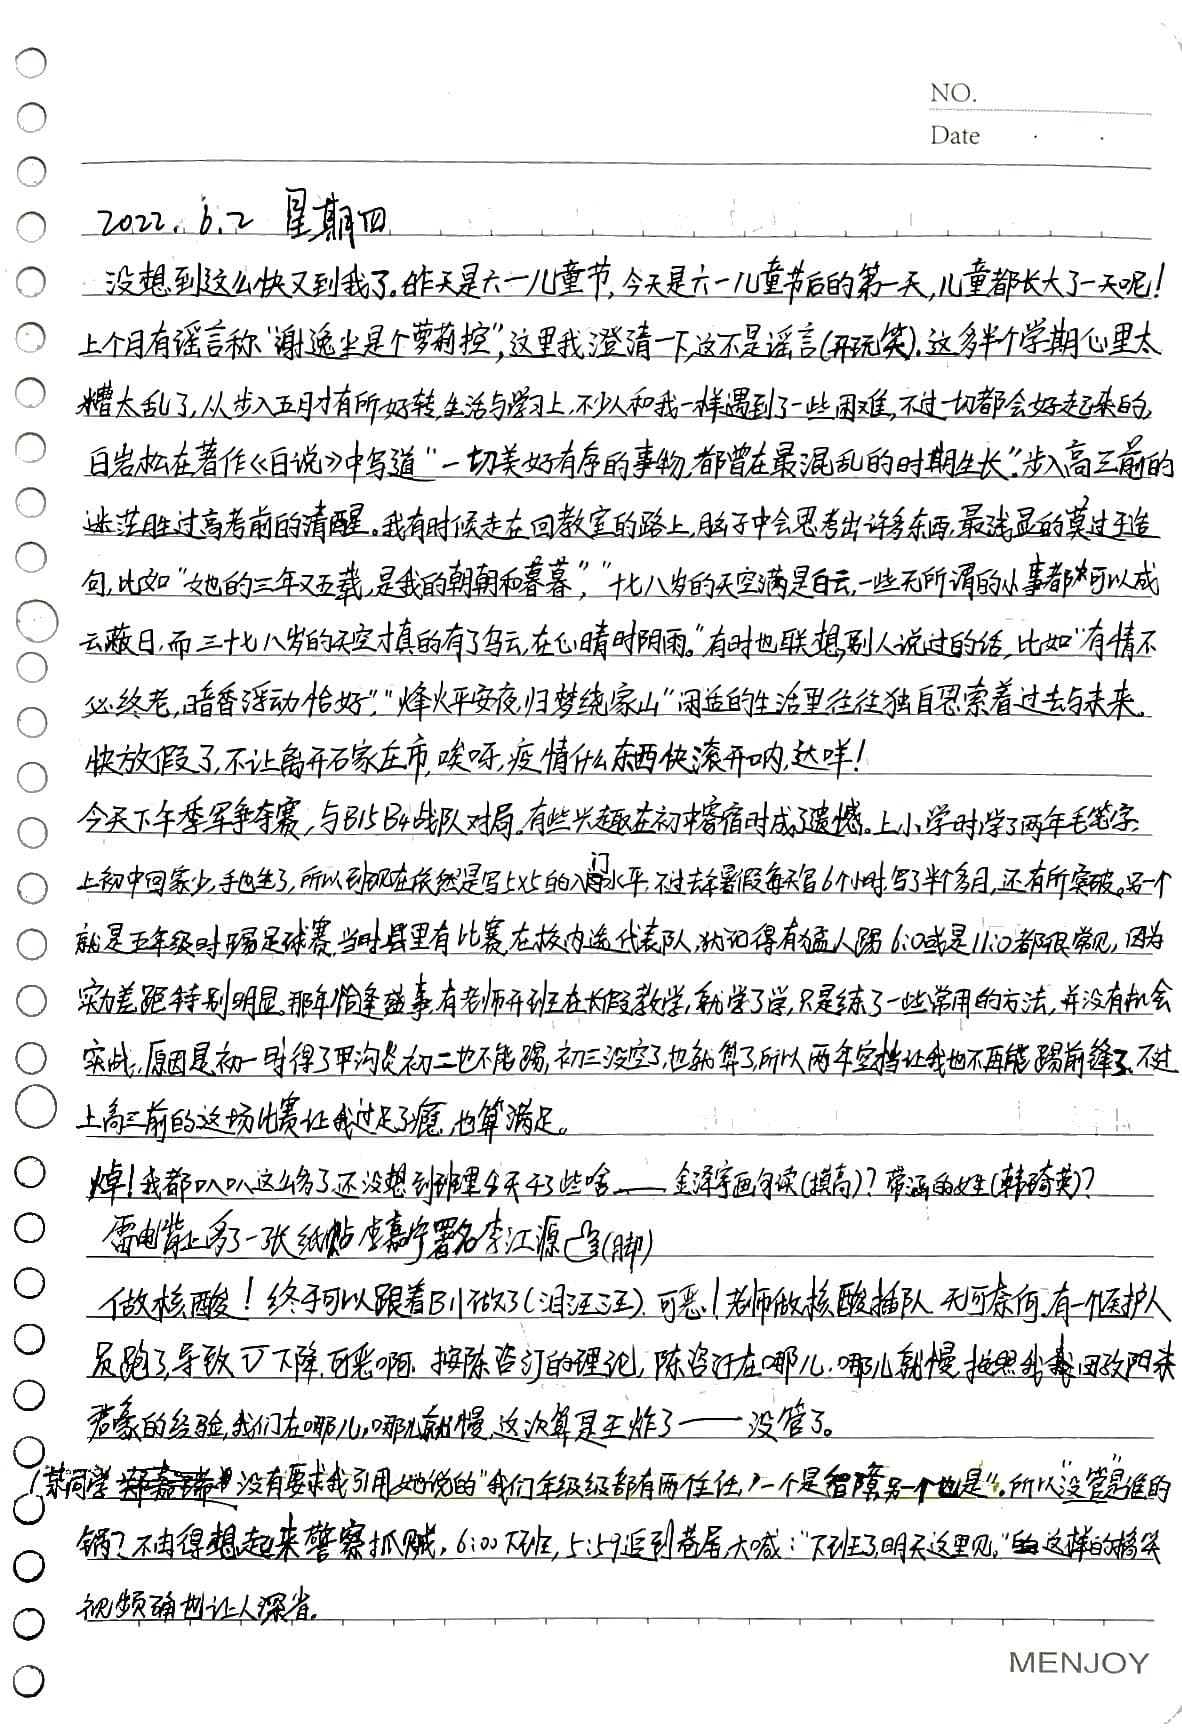 NO.
Date
2022.6.2 星期四
没想到这么快又到我了。昨天是六一儿童节,今天是六一儿童节后的第一天,儿童都长大了一天呢!
上个月有谣言称“谢逸尘是个萝莉控”,这里我澄清一下,这不是谣言(开玩笑).这多半个学期心里太
糟太乱了,从步入五月才有所好转,生活与学习上,不少人和我一样遇到了一些困难,不过一切都会好起来的,
白岩松在著作《白说》中写道“一切美好有序的事物,都曾在最混乱的时期生长”.步入高三前的
迷茫胜过高考前的清醒。我有时候走在回教室的路上,脑子中会思考出许多东西,最浅显的莫过于造
句,比如“她的三年又五载,是我的朝朝和暮暮”,“十七八岁的天空满是白云,一些无所谓的小事都可以成
云蔽日,而三十七八岁的天空才真的有了乌云,在心晴时阴雨。”有时也联想别人说过的话,比如“有情不
必终老,暗香浮动恰好”.“烽火平安夜,归梦绕家山”闲适的生活里往往独自思索着过去与未来.
快放假了,不让离开石家庄市,唉呀,疫情什么东西快滚开呐,达咩!
今天下午季军争夺赛,与B15B4战队对局。有些兴趣在初中寄宿时成了遗憾.上小学时学了两年毛笔字,
上初中回家少,手也生了,所以到现在依然是写5x5的入门水平,不过去年暑假每天写6个小时,写了半个多月,还有所突破。另一个
就是五年级时踢足球赛,当时县里有比赛,在校内选代表队,犹记得有猛人踢6:0或是11:0都很常见,因为
实力差距特别明显.那年恰逢盛事,有老师开班在长假教学,就学了学,只是练了一些常用的方法,并没有机会
实战,原因是初一时得了甲沟炎初二也不能踢,初三没空了,也就算了,所以两年空挡让我也不再能踢前锋了.不过
上高三前的这场比赛让我过足了瘾,也算满足。
焯!我都叭叭这么多了,还没想到班里今天干了些啥——金泽宇画句读(模高)?带 的女生(韩琦英)?
雷电背上多了一张纸帖 嘉宁署名李江源 (脚)
做核酸!终于可以跟着B11做了(泪汪汪).可恶!老师做核酸插队,无可奈何.有一个医护人
员跑了,导致V下降,可恶啊.按陈咨汀的理论,陈咨汀在哪儿,哪儿就慢,按照我 阳来
君豪的经验,我们在哪儿,哪儿就慢,这次算是王炸了——没管了。
(某同学 没有要求我引用她说的“我们年级级部有两任任,一个是智障,另一个也是”.所以“没管”是谁的
锅?不由得想起来警察抓贼,6:00下班,5:59追到巷尾,大喊:“下班了,明天这里见,”这样的搞笑
视频确也让人深省.
MENJOY